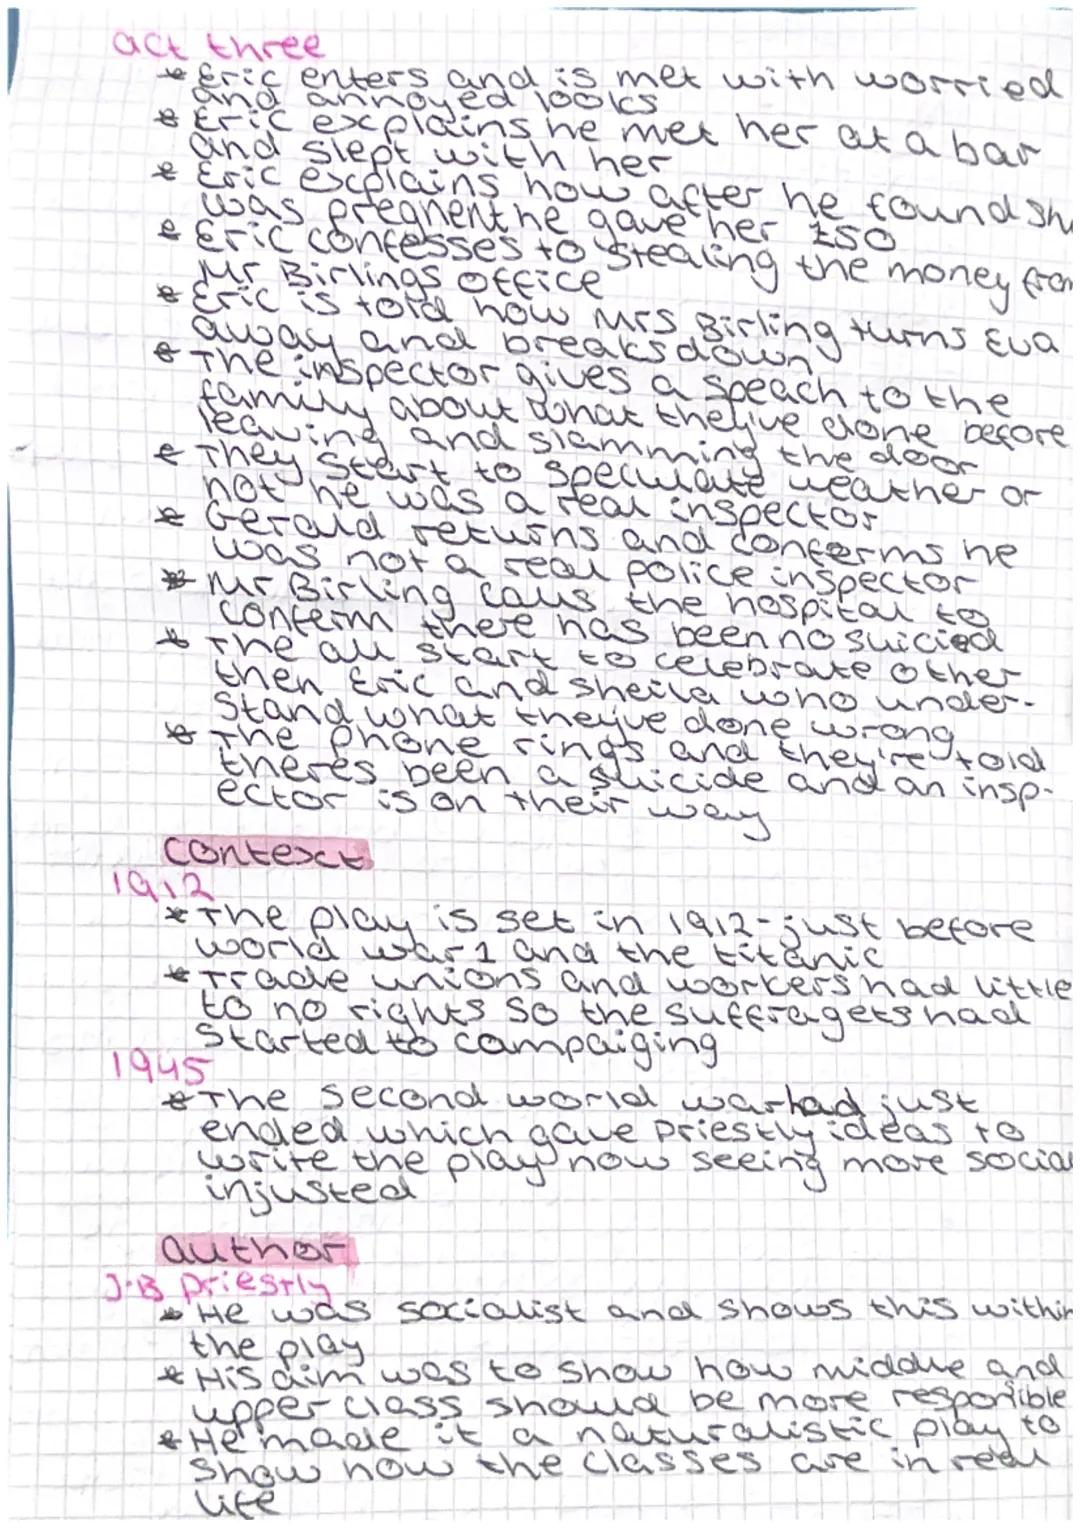 act three
* Eric enters and is met with worried
and annoyed looks
* Eric explains he met her at a bar
and slept with her
* Eric explains how after he found sh
was pregnent he gave her £50
* Eric confesses to stealing the money from
Mr Birlings office
* Eric is told how Mrs Birling turns Eva
away and breaks down
* The inspector gives a speach to the
family about what they've done before
leaving and slamming the door
* They start to speculate weather or
not he was a real inspector
* Gerald returns and conferms he
was not a real police inspector
* Mr Birling calls the hospital to
conferm there has been no suicied
* The all start to celebrate other
then Eric and Sheila who under-
stand what they've done wrong
* The phone rings and they're told
theres been a suicide and an insp-
ector is on their way
context
1912
* The play is set in 1912 - just before
world war 1 and the titanic
* Trade unions and workers had little
to no rights so the suffragets had
started to campaiging
1945
* The second world war had just
ended which gave Priestly ideas to
write the play now seeing more social
injusted
author
J.B Priestly
* He was socialist and shows this within
the play
* His aim was to show how middle and
upper class should be more responible
* He made it a naturalistic play to
show how the classes are in real
life